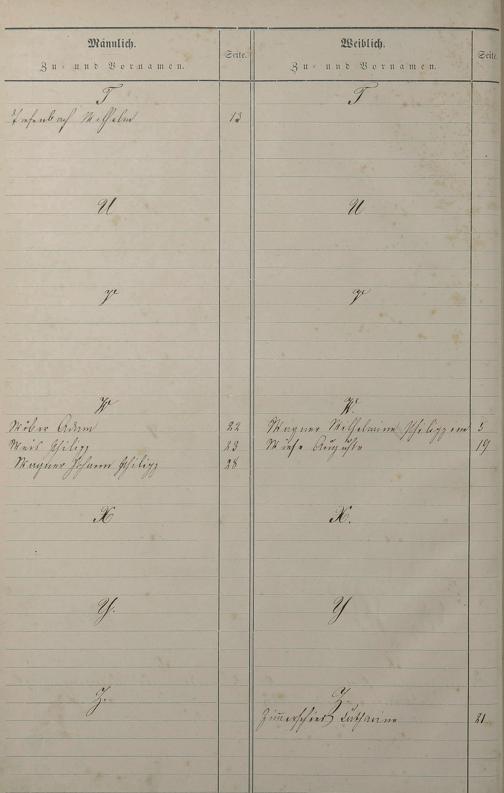 Männlich.
Zu- und Vornamen.
Seite.
T
Wilhelm 13
U
V
W
Weber Adam 22
Weis Philipp 23
Wagner Johann Philipp 28
X
Y.
Z.
Weiblich.
Zu- und Vornamen.
Seite.
T
U
V
W.
Wagner Wilhelmine Philippine 5
Auguste 19
X.
Y
Z
Zimmerschied Catharine 21